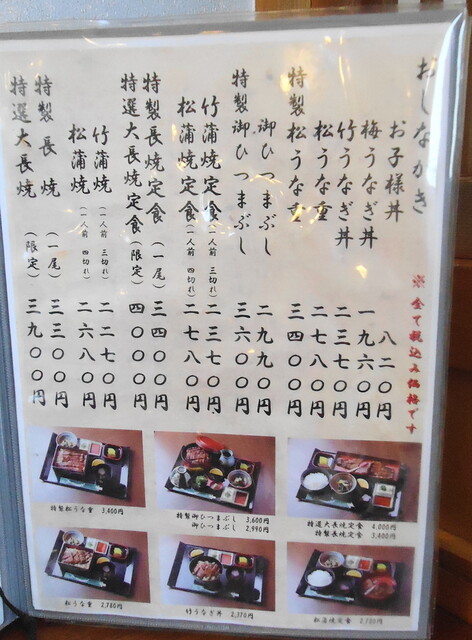 おしながき
※全て税込み価格です
お子様丼 八二〇円
梅うなぎ丼 一、九六〇円
竹うなぎ丼 二、三七〇円
松うな重 二、七八〇円
特製松うな重 三、四〇〇円
御ひつまぶし 二、九九〇円
特製御ひつまぶし 三、六〇〇円
竹蒲焼定食(一人前 三切れ) 二、三七〇円
松蒲焼定食(一人前 四切れ) 二、七八〇円
特製長焼定食(一尾) 三、四〇〇円
特選大長焼定食(限定) 四、〇〇〇円
竹蒲焼(一人前 三切れ) 二、二七〇円
松蒲焼(一人前 四切れ) 二、六八〇円
特製長焼(一尾) 三、三〇〇円
特選大長焼(限定) 三、九〇〇円
特製松うな重 3,400円
特製御ひつまぶし 3,600円
御ひつまぶし 2,990円
特選大長焼定食 4,000円
特製長焼定食 3,400円
松うな重 2,780円
竹うなぎ丼 2,370円
松蒲焼定食 2,780円